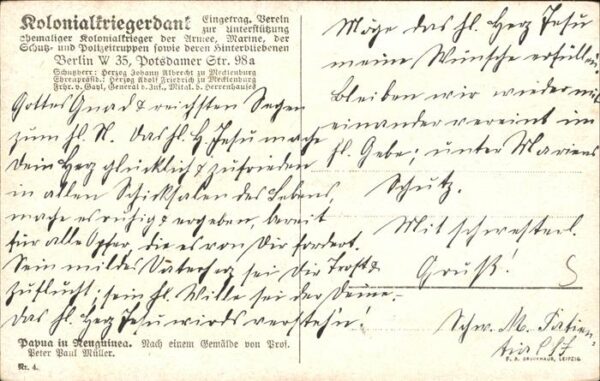 Kolonialkriegerdank Eingetrag. Verein
zur Unterstützung
ehemaliger Kolonialkrieger der Armee, Marine, der
Schutz- und Polizeitruppen sowie deren Hinterbliebenen
Berlin W 35, Potsdamer Str. 98a
Schutzherr: Herzog Johann Albrecht zu Mecklenburg
Ehrenpräsid.: Herzog Adolf Friedrich zu Mecklenburg
Frhr. v. Gayl, General d. Inf., Mitgl. d. Herrenhauses
Gottes Gnad & reichsten Segen
zum hl. N. Das hl. H. Jesu mache
Dein Herz glücklich & zufrieden
in allen Schicksalen des Lebens,
mache es ruhig & ergeben, bereit
für alle Opfer, die es von Dir fordert.
Sein mildes Vaterherz sei Dir Trost &
Zuflucht; sein hl. Wille sei der Deine.
Das hl. Herz Jesu wird's versteh'n!
Papua in Neuguinea. Nach einem Gemälde von Prof.
Peter Paul Müller.
Nr. 4.
Möge das hl. Herz Jesu
meine Wünsche erfüllen.
Bleiben wir wieder mit
einander vereint im
hl. Gebe; unter Mariens
Schutz.
Mit schwesterl.
Gruß!
Schw. M.
F. A. BROCKHAUS, LEIPZIG.